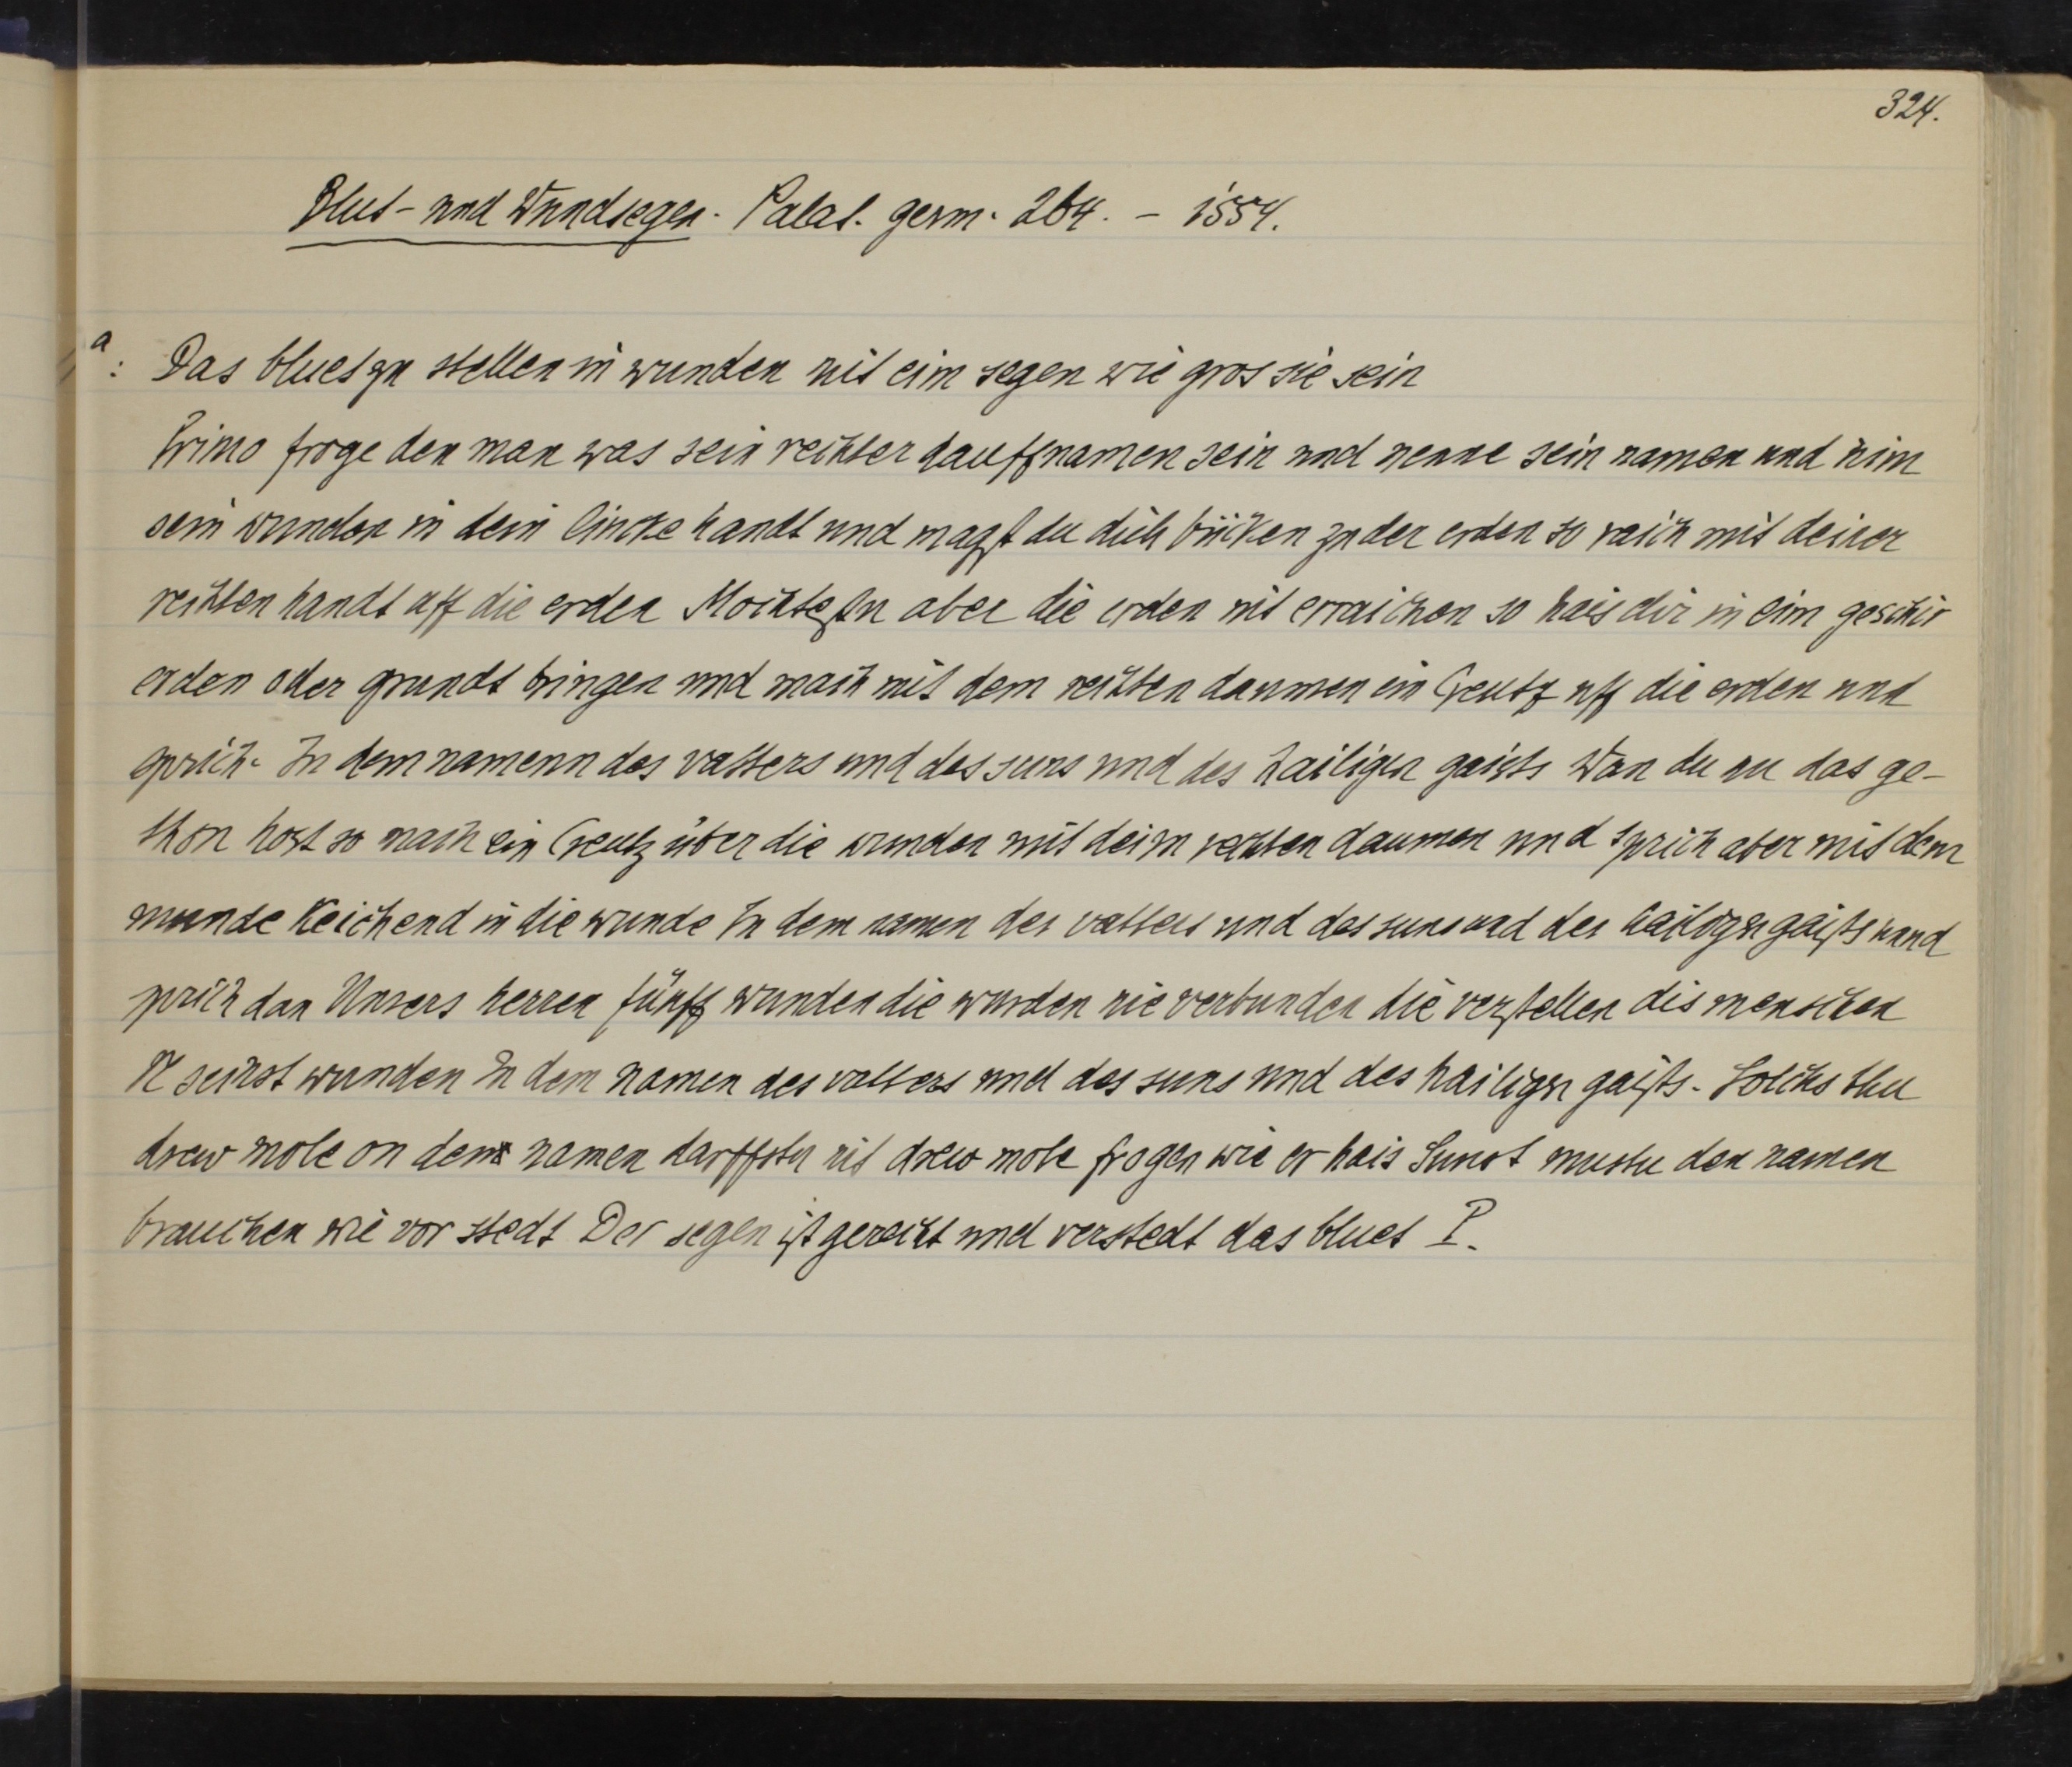 324.
Blut- und Wundsegen. Palat. germ. 264. - 1554.
a:
Das bluet zu stellen in wunden mit eim segen wie gros sie sein
Primo froge den man was sein rechter dauffnamen sein und nenne sein namen und nim
sein wunden in dein lincke handt und magst du dich bücken zu der erden so raich mit deiner
rechten handt uff die erden Mochtestu aber die erden nit erraichen so hais dir in eim geschir
erden oder grundt bringen und mach mit dem rechten daumen ein Creutz uff die erden und
sprich. In dem namenn des vatters und des suns und des hailigen gaists Wan du nu das ge-
thon host so mach ein Creutz über die wunden mit deim rechten daumen und sprich aber mit dem
munde Keichend in die wunde In dem namen des vatters und des suns und des hailigen gaists unnd
sprich dan Unsers herren fünff wunden die wurden nie verbunden die verstellen dis menschen
N seinst wunden In dem namen des vatters und des suns und des hailigen gaists. Solichs thu
drew mole on dem namen darffstu nit drew mole frogen wie er hais Sunst mustu den namen
brauchen wie vor stedt Der segen ist gerecht und verstedt das bluet P.